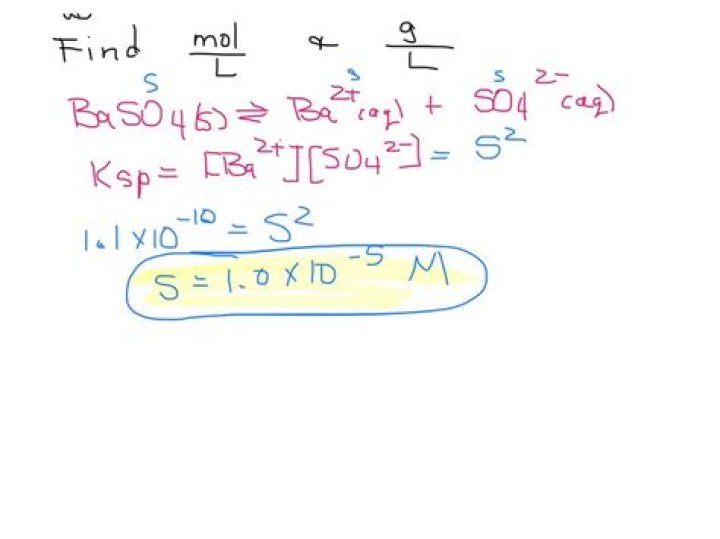 Find mol/L & g/L
S S S
BaSO4(s) ⇌ Ba²⁺(aq) + SO4²⁻(aq)
Ksp = [Ba²⁺][SO4²⁻] = S²
1.1 x 10⁻¹⁰ = S²
S = 1.0 x 10⁻⁵ M